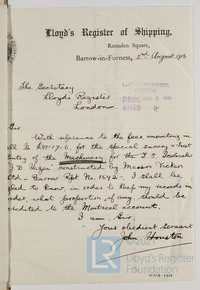 Lloyd's Register of Shipping,
Ramsden Square,
Barrow-in-Furness, 2nd August 1916
The Secretary
Lloyd's Register
London.
Sir
With reference to the fees amounting in
all to for the special survey & test
entry of the Machinery for the S.S.
constructed by Messrs Vickers
Ltd - Barrow Rpt. No. 1642 - I shall be
glad to know, in order to keep my records in
order, what proportion, if any, should be
credited to the Montreal account.
I am, Sir,
Your obedient Servant
John Houston